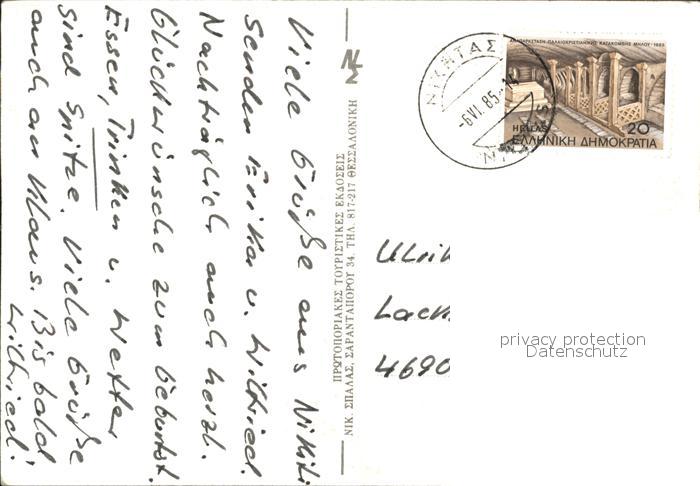 Viele Grüße aus Nikiti
senden Erika u. Wilfried.
Nachträglich auch herzl.
Glückwünsche zum Geburtst.
Essen, Trinken u. Wetter
sind Spitze. Viele Grüße
auch an Klaus. Bis bald
Wilfried!
ΠΡΩΤΟΠΟΡΙΑΚΕΣ ΤΟΥΡΙΣΤΙΚΕΣ ΕΚΔΟΣΕΙΣ
ΝΙΚ. ΣΠΑΛΑΣ, ΣΑΡΑΝΤΑΠΟΡΟΥ 34, ΤΗΛ. 817-217 ΘΕΣΣΑΛΟΝΙΚΗ
ΝΙΚΗΤΑΣ
-6VI.85-14
ΑΝΑΠΑΡΑΣΤΑΣΗ ΠΑΛΑΙΟΧΡΙΣΤΙΑΝΙΚΗΣ ΚΑΤΑΚΟΜΒΗΣ ΜΗΛΟΥ·1985
HELLAS 20
ΕΛΛΗΝΙΚΗ ΔΗΜΟΚΡΑΤΙΑ
Ulrik
Lack
4690
privacy protection
Datenschutz